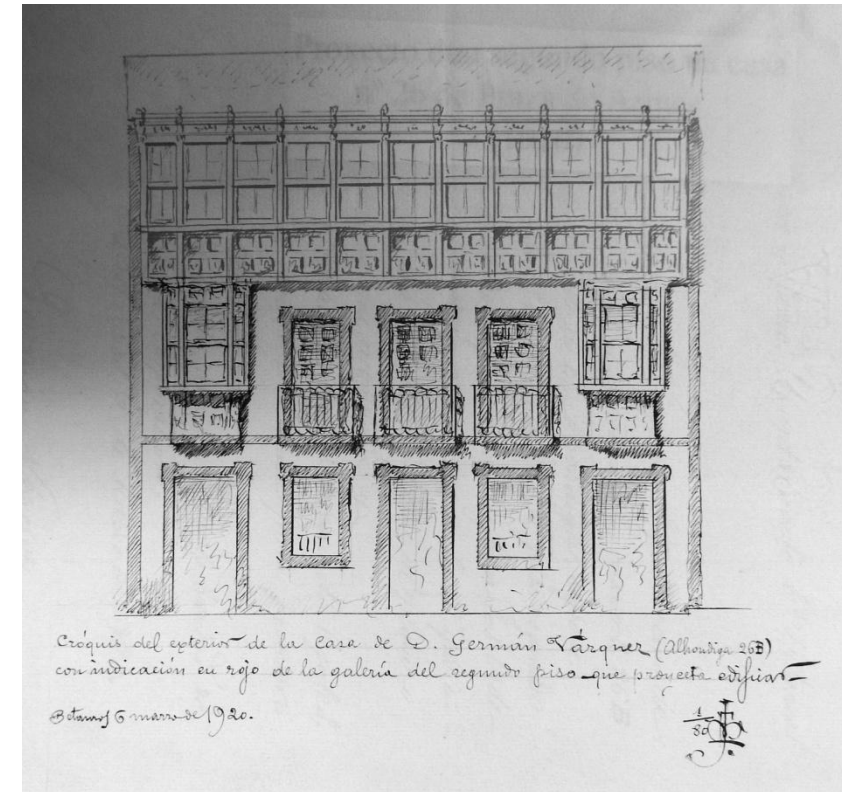 Cróquis del exterior de la Casa de D. Germán Várquez (Alhondiga 26B)
con indicación en rojo de la galería del segundo piso que proyecta edificar
Betanzos 6 marzo de 1920.
1
80